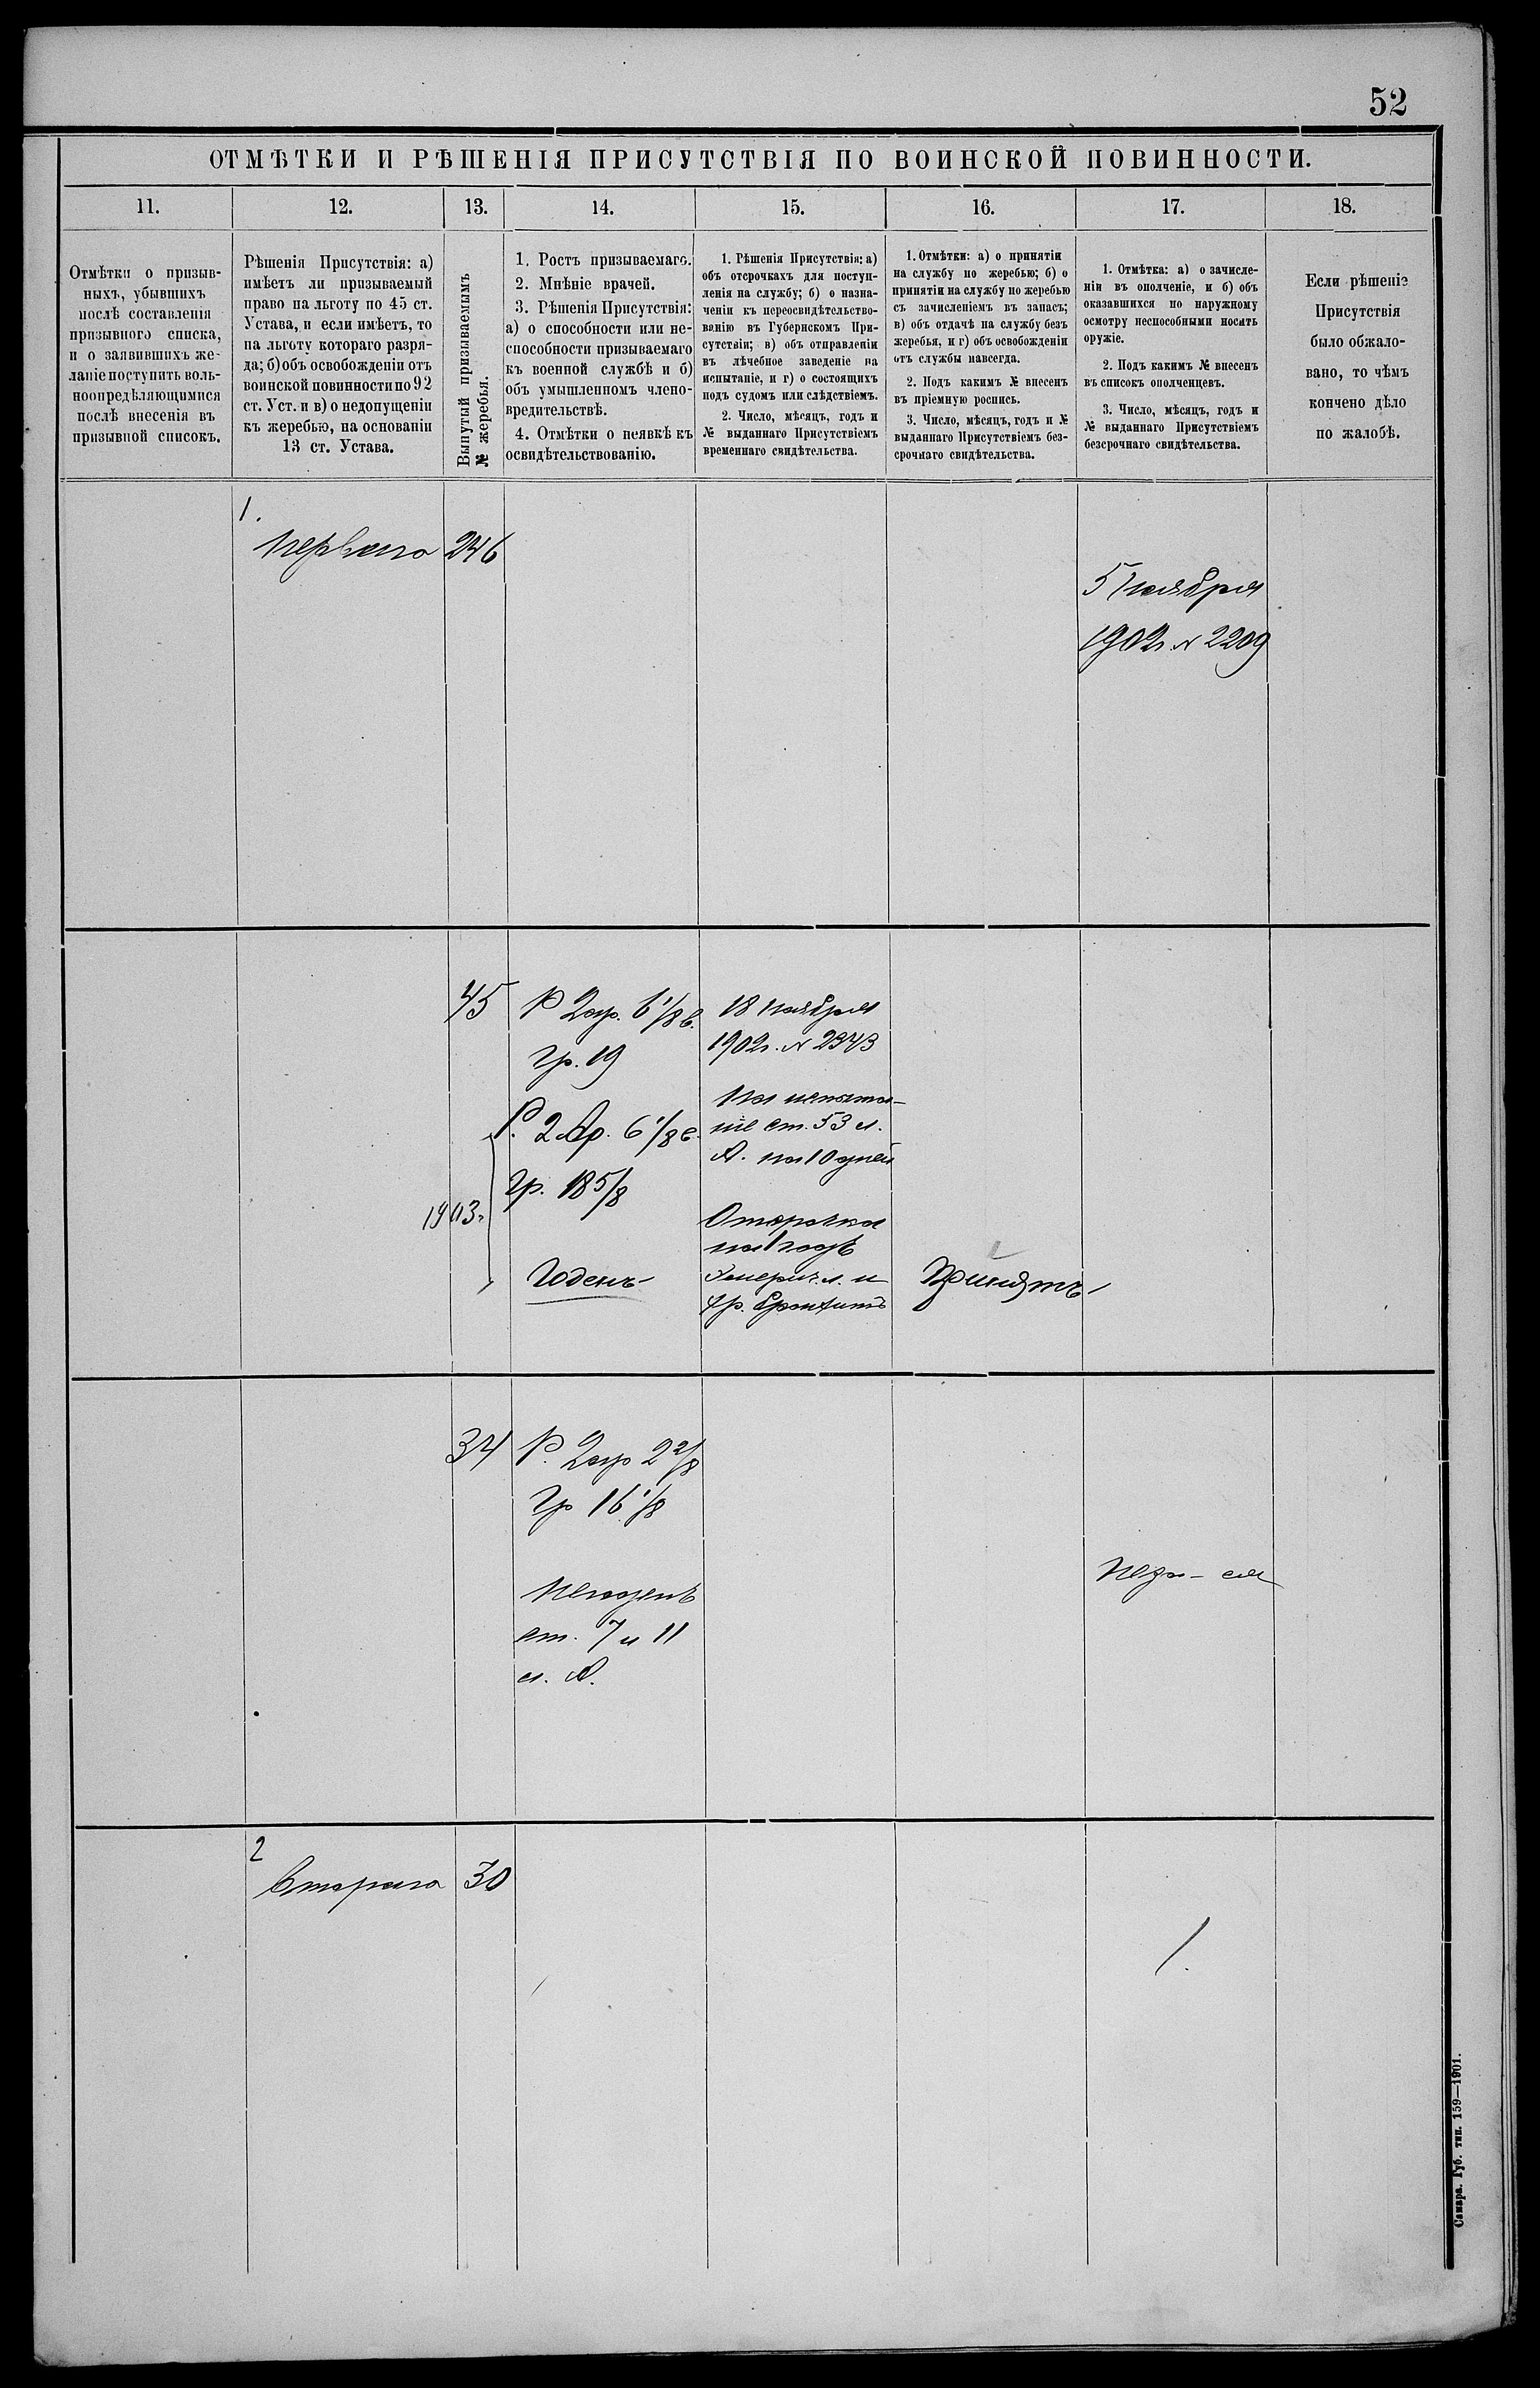 52
ОТМѢТКИ И РѢШЕНІЯ ПРИСУТСТВІЯ ПО ВОИНСКОЙ ПОВИННОСТИ.
11.
12.
13.
14.
15.
16.
17.
18.
Отмѣтки о призыв-
ныхъ, убывшихъ
послѣ составленія
призывного списка,
и о заявившихъ же-
ланіе поступить воль-
ноопредѣляющимися
послѣ внесенія въ
призывной списокъ.
Рѣшенія Присутствія: а)
имѣетъ ли призываемый
право на льготу по 45 ст.
Устава, и если имѣетъ, то
на льготу котораго разря-
да; б) объ освобожденіи отъ
воинской повинности по 92
ст. Уст. и в) о недопущеніи
къ жеребью, на основаніи
13 ст. Устава.
Вынутый призываемымъ
№ жеребья.
1. Ростъ призываемаго.
2. Мнѣніе врачей.
3. Рѣшенія Присутствія:
а) о способности или не-
способности призываемаго
къ военной службѣ и б)
объ умышленномъ члено-
вредительствѣ.
4. Отмѣтки о неявкѣ къ
освидѣтельствованію.
1. Рѣшенія Присутствія: а)
объ отсрочкахъ для поступ-
ленія на службу; б) о назна-
ченіи къ переосвидѣтельство-
ванію въ Губернскомъ При-
сутствіи; в) объ отправленіи
въ лѣчебное заведеніе на
испытаніе, и г) о состоящихъ
подъ судомъ или слѣдствіемъ.
2. Число, мѣсяцъ, годъ и
№ выданнаго Присутствіемъ
временнаго свидѣтельства.
1. Отмѣтки: а) о принятіи
на службу по жеребью; б) о
принятіи на службу по жеребью
съ зачисленіемъ въ запасъ;
в) объ отдачѣ на службу безъ
жеребья, и г) объ освобожденіи
отъ службы навсегда.
2. Подъ какимъ № внесенъ
въ пріемную роспись.
3. Число, мѣсяцъ, годъ и №
выданнаго Присутствіемъ без-
срочнаго свидѣтельства.
1. Отмѣтка: а) о зачисле-
ніи въ ополченіе, и б) объ
оказавшихся по наружному
осмотру неспособными носить
оружіе.
2. Подъ какимъ № внесенъ
въ списокъ ополченцевъ.
3. Число, мѣсяцъ, годъ и
№ выданнаго Присутствіемъ
безсрочнаго свидѣтельства.
Если рѣшеніе
Присутствія
было обжало-
вано, то чѣмъ
кончено дѣло
по жалобѣ.
1.
перваго
246
5 ноября
1902г. № 2209
45
Р 2 ар. 6 1/8 в.
Гр. 19
1903г.
Р. 2 Ар. 6 1/8 в.
Гр. 18 5/8
Годенъ
18 ноября
1902г. № 2343
На испыта-
ніе ст. 53 л.
А. на 10 дней
Отсрочка
на 1 годъ
хр. бронхитъ
Принятъ
34
Р. 2 ар 2 2/8
Гр 16 1/8
Негоденъ
ст. 7 и 11
л. А.
2
Второго
30
1.
Самара. Губ. тип. 159—1901.